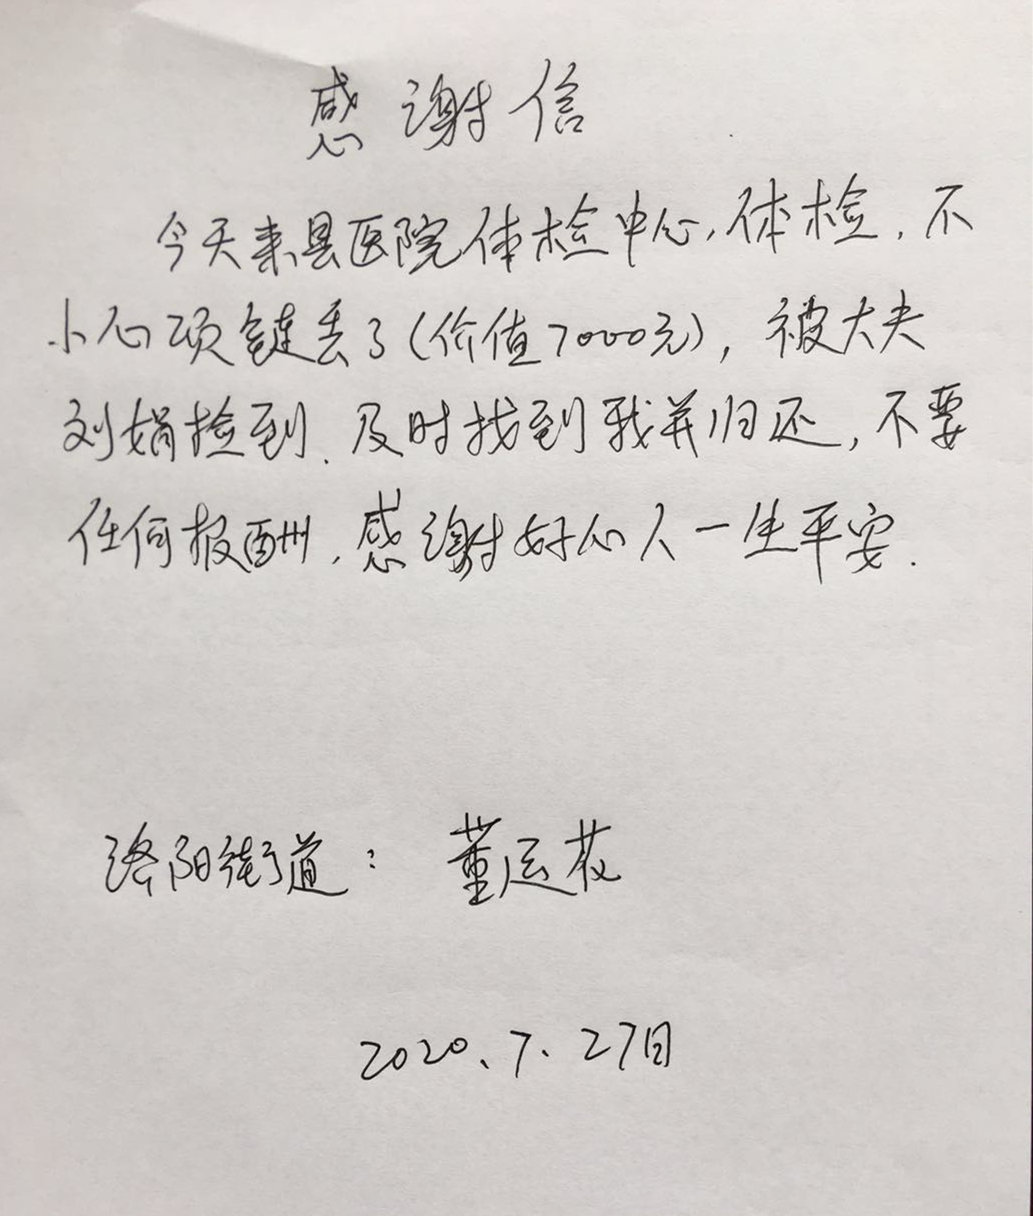 感谢信
今天来县医院体检中心,体检,不
小心项链丢了(价值7000元),被大夫
刘娟捡到.及时找到我并归还,不要
任何报酬,感谢好心人一生平安.
洛阳街道:董运花
2020、7、27日